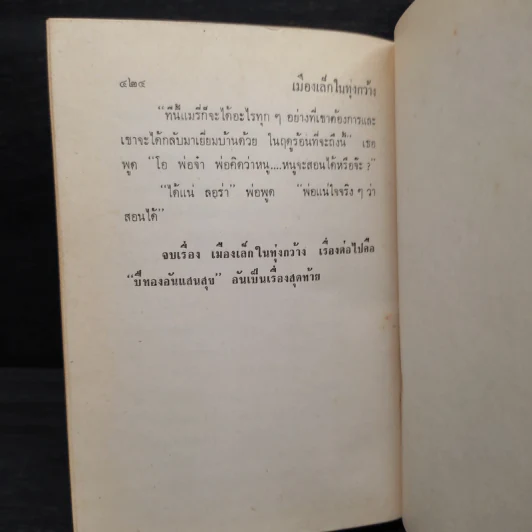 ๔๒๔ เมืองเล็กในทุ่งกว้าง
"ทีนี้แมรี่ก็จะได้อะไรทุก ๆ อย่างที่เขาต้องการและ
เขาจะได้กลับมาเยี่ยมบ้านด้วย ในฤดูร้อนที่จะถึงนี้" เธอ
พูด "โอ พ่อจ๋า พ่อคิดว่าหนู....หนูจะสอนได้หรือจ๊ะ ?"
"ได้แน่ ลอร่า" พ่อพูด "พ่อแน่ใจจริง ๆ ว่า
สอนได้"
จบเรื่อง เมืองเล็กในทุ่งกว้าง เรื่องต่อไปคือ
"ปีทองอันแสนสุข" อันเป็นเรื่องสุดท้าย